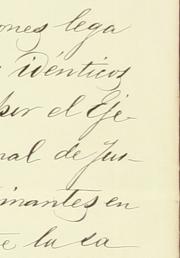 ones lega
idénticos
por el Eje-
nal de Jus-
inantes en
e la ca